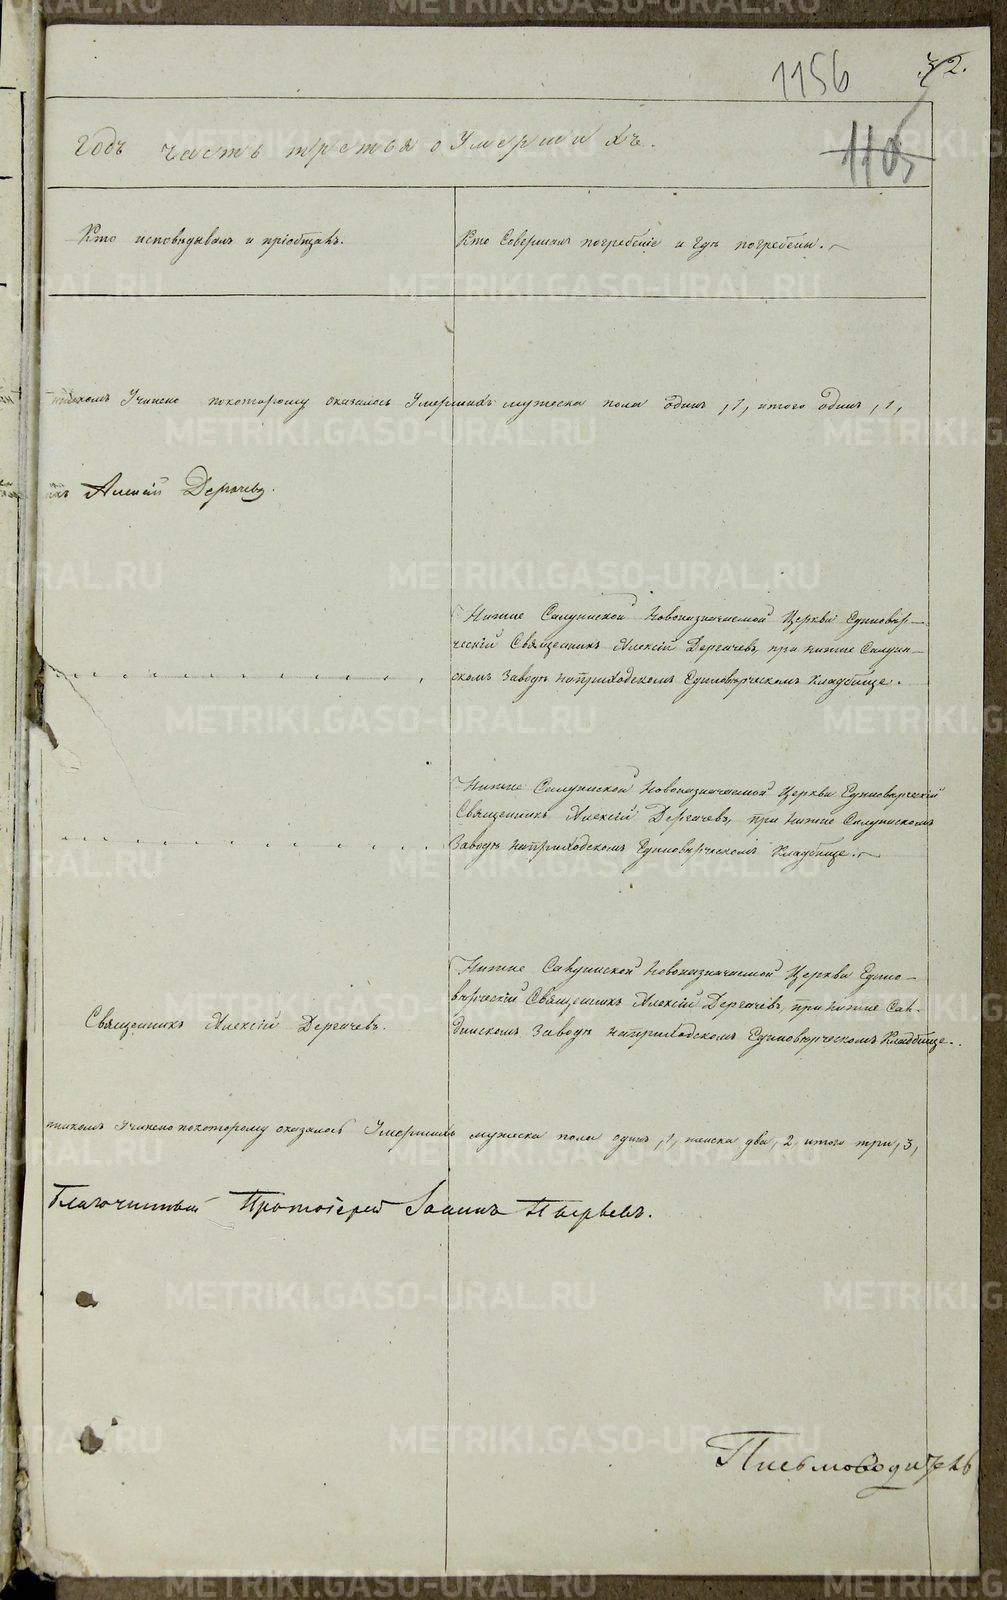 1156
32.
1105
годъ часть третья о Умершихъ.
Кто исповѣдывалъ и пріобщалъ.
Кто Совершилъ погребеніе и гдѣ погребены.
Учинено покоторому оказалось Умершихъ мужеска пола одинъ ,1, итого одинъ ,1,
Алексій Дергачевъ.
Нижне Салдинской Новоназначаемой Церкви Единовѣр-
ческій Священникъ Алексій Дергачевъ, при Нижне Салдин-
скомъ Заводѣ наприходскомъ Единовѣрческомъ Кладбище.
Нижне Салдинской Новоназначаемой Церкви Единовѣрческій
Священникъ Алексій Дергачевъ, при Нижне Салдинскомъ
Заводѣ наприходскомъ Единовѣрческомъ Кладбище.
Нижне Салдинской Новоназначаемой Церкви Едино-
вѣрческій Священникъ Алексій Дергачевъ, при Нижне Сал-
динскомъ Заводѣ наприходскомъ Единовѣрческомъ Кладбище.
Священникъ Алексій Дергачевъ.
Учинено покоторому оказалось Умершихъ мужеска пола одинъ ,1, женска два, 2, итого три, 3,
Благочинный Протоіерей Іоаннъ Пырьевъ.
Письмоводитель
METRIKI.GASO-URAL.RU